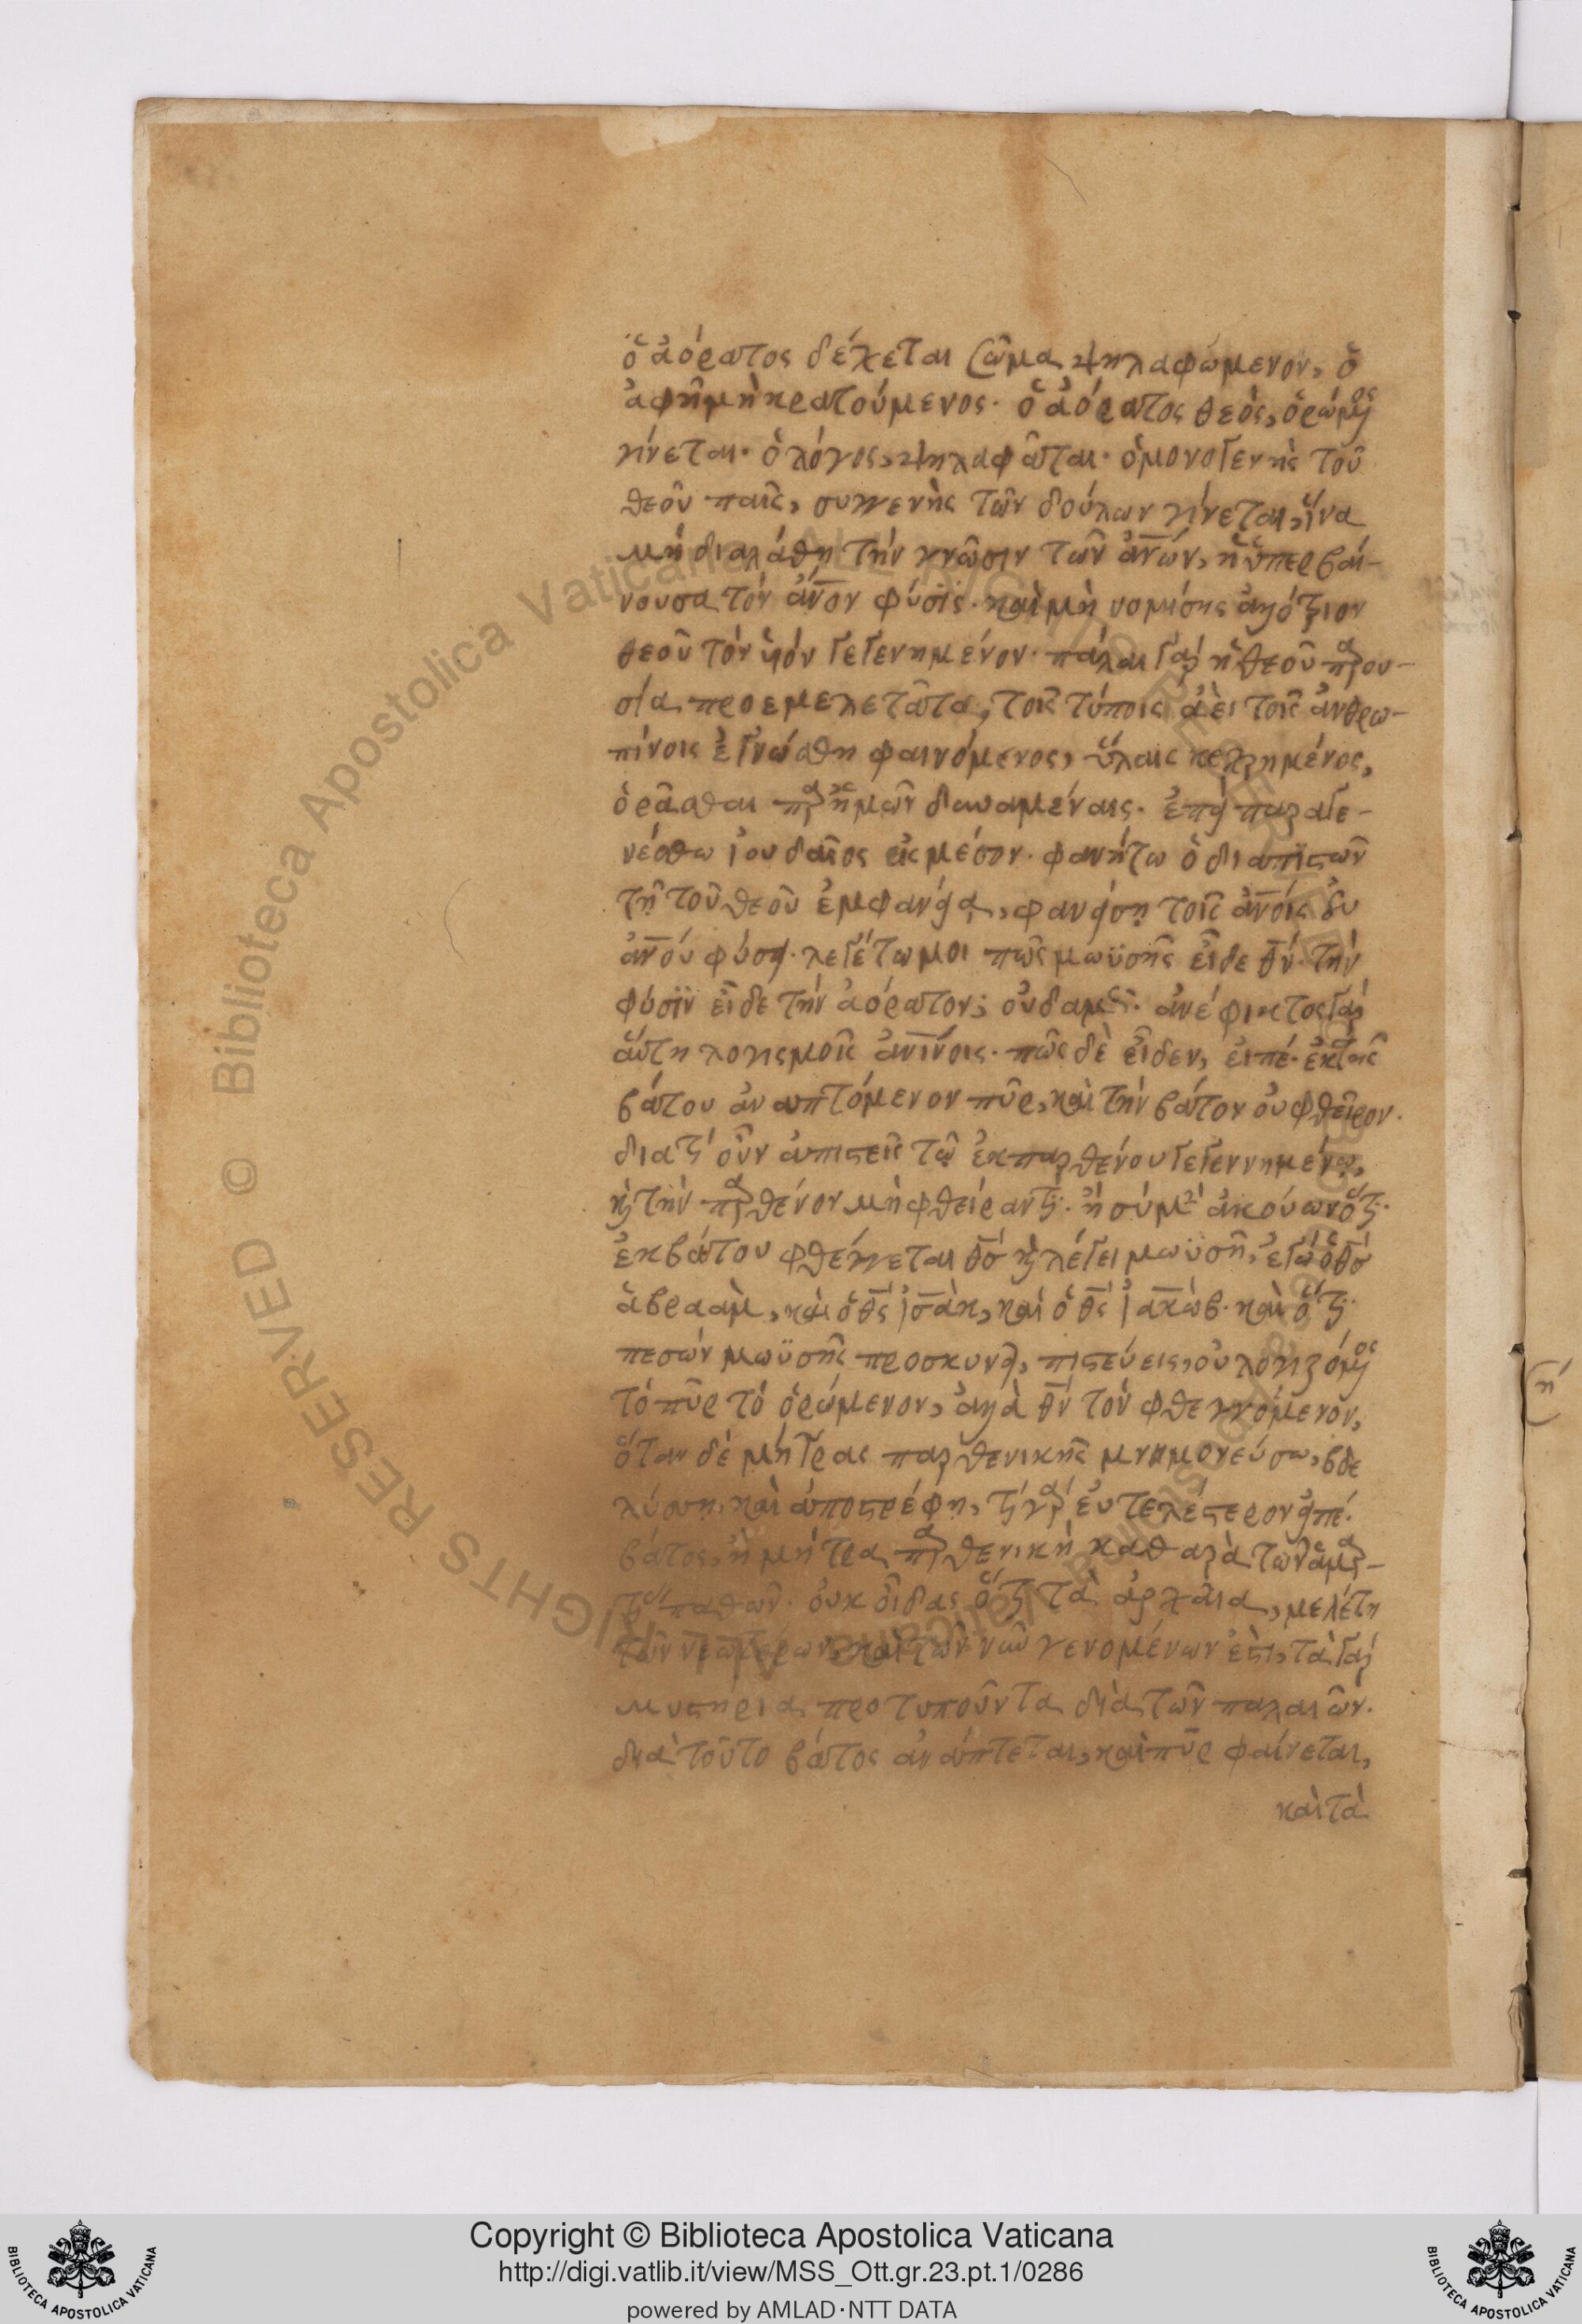 ὁ ἀόρατος δέχεται σῶμα ψηλαφώμενον, ὁ
ἀφῆ μὴ κρατούμενος· ὁ ἀόρατος θεὸς, ὁρώμενος
γίνεται· ὁ λόγος, ψηλαφᾶται· ὁ μονογενὴς τοῦ
θεοῦ παῖς, συγγενὴς τῶν δούλων γίνεται, ἵνα
μὴ διαλάθη τὴν γνῶσιν τῶν ἀνῶν, ἡ ὑπερβαί-
νουσα τὸν ἄνον φύσϊς· καὶ μὴ νομίσης ἀλότριον
θεοῦ τὸν υἱόν γεγενημένον· πάλαι γὰρ ἡ θεοῦ παρου-
σία προεμελετᾶτο, τοῖς τύποις ἀεὶ τοῖς ἀνθρω-
πίνοις ἐγνώσθη φαινόμενος, ὕλαις κεχρημένος,
ὁρᾶσθαι παρ' ἡμῶν δυναμέναις· ἐπεὶ παραγε-
νέσθω ἰουδαῖος εἰς μέσον· φανήτω ὁ διαπιστῶν
τῇ τοῦ θεοῦ ἐμφανείᾳ, φανείσῃ τοῖς ἀνοις ἐν
ἀνου φύσει· λεγέτω μοι πῶς μωϋσῆς εἶδε θν· τὴν
φύσϊν εἶδε τὴν ἀόρατον; οὐδαμῶς· ἀνέφικτος γὰρ
αὕτη λογισμοῖς ἀνίνοις· πῶς δὲ εἶδεν, εἰπέ· ἐκ τῆς
βάτου ἀναπτόμενον πῦρ, καὶ τὴν βάτον οὐ φθεῖρον·
διατί οὖν ἀπιστεῖς τῶ ἐκ παρθένου γεγεννημένω,
κ τὴν παρθένον μὴ φθείραντι· ἢ σὺ μὲν ἀκούων ὅτι
ἐκ βάτου φθέγγεται θσ κ λέγει μωϋσῆ, ἐγὼ ὁ θσ
ἀβραὰμ, καὶ ὁ θς ἰσαὰκ, καὶ ὁ θς ἰακὼβ· καὶ ὅτι
πεσὼν μωϋσῆς προσκυνεῖ, πιστεύεις, οὐ λογιζόμενος
τὸ πῦρ τὸ ὁρώμενον, ἀλὰ θν τὸν φθεγγόμενον,
ὅταν δὲ μήτρας παρθενικῆς μνημονεύσω, βδε
λύσση, καὶ ἀποστρέφη, τί γὰρ εὐτελέστερον εἰπέ·
βάτος, ἢ μήτρα παρθενικὴ καθαρὰ τῶν ἁμαρ-
παθῶν· οὐκ οἶδας ὅτι τὰ ἀρχαῖα, μελέτη
τῶν νεωτέρων, καὶ τῶν νῦν γενομένων ἐστι, τὰ γὰρ
μυστήρια προτυποῦντα διὰ τῶν παλαιῶν·
διὰ τοῦτο βάτος ἀνάπτεται, καὶ πῦρ φαίνεται,
καὶ τὰ
(ή
Biblioteca Apostolica Vaticana ALL RIGHTS RESERVED ©
Copyright © Biblioteca Apostolica Vaticana
http://digi.vatlib.it/view/MSS_Ott.gr.23.pt.1/0286
powered by AMLAD·NTT DATA
BIBLIOTECA APOSTOLICA VATICANA
BIBLIOTECA APOSTOLICA VATICANA